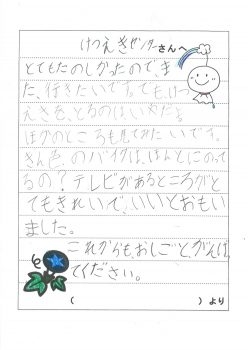 けつえきセンターさんへ
とてもたのしかったので、ま
た、行きたいです。でもけつ
えきを、とるのはいやだな。
ほかのところも見てみたいです。
きん色のバイクは、ほんとにのって
るの？テレビがあるところがと
てもきれいで、いいとおもい
ました。
これからも、おしごと、がんばっ
てください。
(　　　　　　　　　　)より